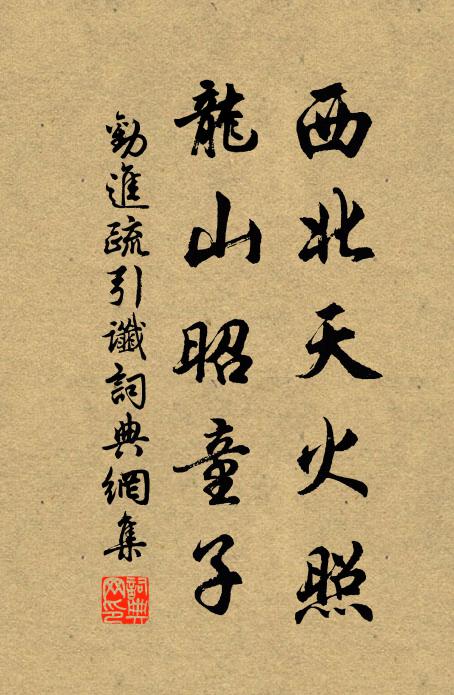 西北天火照
龍山昭童子
勸進疏引讖詞典網集
詞典網印